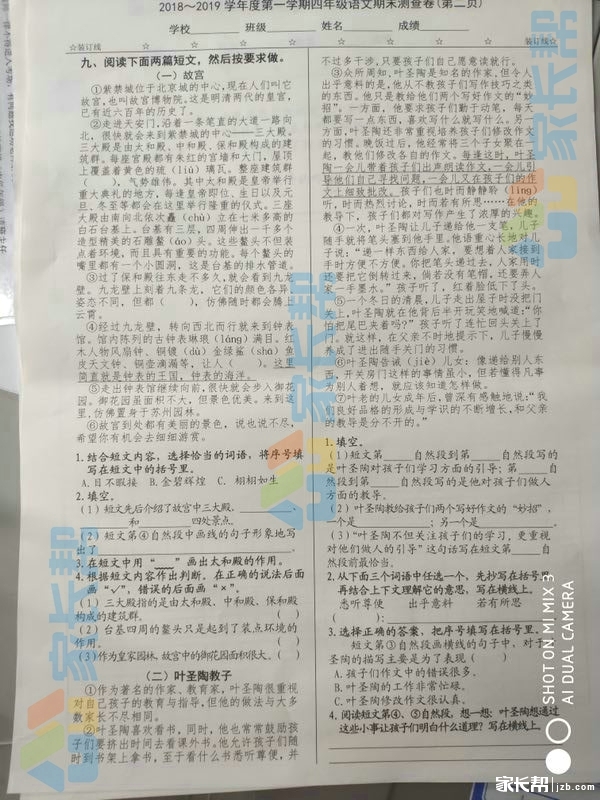 2018～2019学年度第一学期四年级语文期末测查卷(第二页)
学校 班级 姓名 成绩
☆装订线☆ ☆ ☆ ☆ ☆ ☆ ☆ ☆装订线☆
九、阅读下面两篇短文，然后按要求做。
（一）故宫
①紫禁城位于北京城的中心，现在人们叫它
故宫，也叫故宫博物院。这是明清两代的皇宫，
已有近六百年的历史了。
②走进天安门，沿着一条笔直的大道一路向
北，很快就会来到紫禁城的中心——三大殿。
三大殿是由太和殿、中和殿、保和殿构成的建
筑群。每座宫殿都有朱红的宫墙和大门，屋顶
上覆盖着黄色的琉（liú）璃瓦。整座建筑
（ ），气势雄伟。其中太和殿是皇帝举行
重大典礼的地方，每逢皇帝即位、生日以及元
旦、冬至等都会在这里举行隆重的仪式。三座
大殿由南向北依次矗（chù）立在七米多高的
白石台基上。台基有三层，四周伸出一千多个
造型精美的石雕鳌（áo）头。这些鳌头不但装
点着环境，而且具有重要的功能。每个鳌头的
嘴里都有一个小圆洞，这是台基的排水管道。
③过了保和殿往东走不多久，就会看到九龙
壁。九龙壁上刻着九条龙，它们的颜色各异，
姿态不同，但都（ ），仿佛随时都会腾上
云霄。
④经过九龙壁，转向西北而行就来到钟表
馆。馆内陈列的古钟表琳琅（láng）满目。红
木人物风扇钟、铜镀（dù）金绿鲨（shā）鱼
皮天文钟、铜壶滴漏等，让人（ ）。这里
简直就是钟表的王国，钟表的海洋。
⑤走出钟表馆继续向前，很快就会步入御花
园。御花园虽面积不大，但景色优美。来到这
里，仿佛置身于苏州园林。
⑥故宫到处都有美丽的景色，说也说不尽，
希望你有机会去细细游赏。
1.结合短文内容，选择恰当的词语，将序号填
写在文中的括号里。
A.目不暇接 B.金碧辉煌 C.栩栩如生
2.填空。
（1）短文先后介绍了故宫中三大殿、
和 四处景点。
（2）短文第④自然段中画线的句子形象地写
出了 。
3.在短文中用“ ”画出太和殿的作用。
4.根据短文内容作出判断。在正确的说法后面
画“√”，错误的后面画“×”。
（1）三大殿指的是由太和殿、中和殿、保和殿
构成的建筑群。 （ ）
（2）台基四周的鳌头只是起到了装点环境的
作用。 （ ）
（3）作为皇家园林，故宫中的御花园面积很大。（ ）
（二）叶圣陶教子
①作为著名的作家、教育家，叶圣陶很重视
对自己孩子的教育与指导，但他的做法与大多
数家长不尽相同。
②叶圣陶喜欢看书，同时，他也常常鼓励孩
子们要挤出时间去看课外书。他允许孩子们随
时到书架上拿书，至于看什么书悉听尊便，并
不过多干涉，只要孩子们自己愿意读就行。
③众所周知，叶圣陶是知名的作家，但令人
出乎意料的是，他从不教孩子们写作技巧之类
的东西。他只是教给他们两个写好作文的“妙
招”。一方面，他要求孩子们勤于动笔，每天
都要写一点东西，喜欢写什么就写什么。另一
方面，叶圣陶还非常重视培养孩子们修改作文
的习惯。晚饭过后，他经常将三个子女聚在一
起，教他们修改各自的作文。每逢这时，叶圣
陶一会儿带着孩子们出声朗读作文，一会儿引
导他们自己寻找问题，一会儿又在孩子们的作
文上细致批改。孩子们也时而静静聆（líng）
听，时而热烈讨论，时而若有所思……在他的
教导下，孩子们都对写作产生了浓厚的兴趣。
④一次，叶圣陶让儿子递给他一支笔，儿子
随手就将笔头塞到他手里。他语重心长地对儿
子说：“递一样东西给人家，要想着人家接到
手时方便不方便。你把笔头递过去，人家用时
还要把它倒转过来，倘若没有笔帽，还要弄人
家一手墨水。”孩子听了，红着脸低下了头。
⑤一个冬日的清晨，儿子走出屋子时没把门
关上，叶圣陶就在他背后半开玩笑地喊道：“你
怕把尾巴夹着吗？”孩子听了连忙回头关上了
门。就这样，在父亲不时地提示下，儿子慢慢
养成了进出随手关门的习惯。
⑥叶圣陶告诫（jiè）儿女：像递给别人东
西、开关房门这样的事情虽小，但若懂得凡事
为别人着想，就应该知道怎样做。
⑦叶老的儿女成年后，曾深有感触地说：“我
们良好品格的形成与学识的不断增长，和父亲
的教导是分不开的。”
1.填空。
（1）短文第 自然段到第 自然段写的
是叶圣陶对孩子们学习方面的引导；第 自
然段到第 自然段写的是他对孩子们做人
方面的教导。
（2）叶圣陶教给孩子们两个写好作文的“妙招”，
一个是 ；另一个是 。
（3）“叶圣陶不但关注孩子们的学习，更重视
对他们做人的引导”这句话写在短文第 自
然段前最恰当。
2.从下面三个词语中任选一个，先抄写在括号里，
再结合上下文理解它的意思，写在横线上。
悉听尊便 出乎意料 若有所思
（ ）：
3.选择正确的答案，把序号填写在括号里。
短文第③自然段画横线的句子中，对于叶
圣陶的描写主要是为了表现（ ）
A.孩子们作文中的错误很多。
B.叶圣陶的工作非常忙碌。
C.叶圣陶修改作文很认真。
4.阅读短文第④、⑤自然段，想一想：叶圣陶想通过
这些小事让孩子们明白什么道理？写在横线上。
家长帮
家长帮
家长帮
SHOT ON MI MIX 3
AI DUAL CAMERA
家长帮 jzb.com